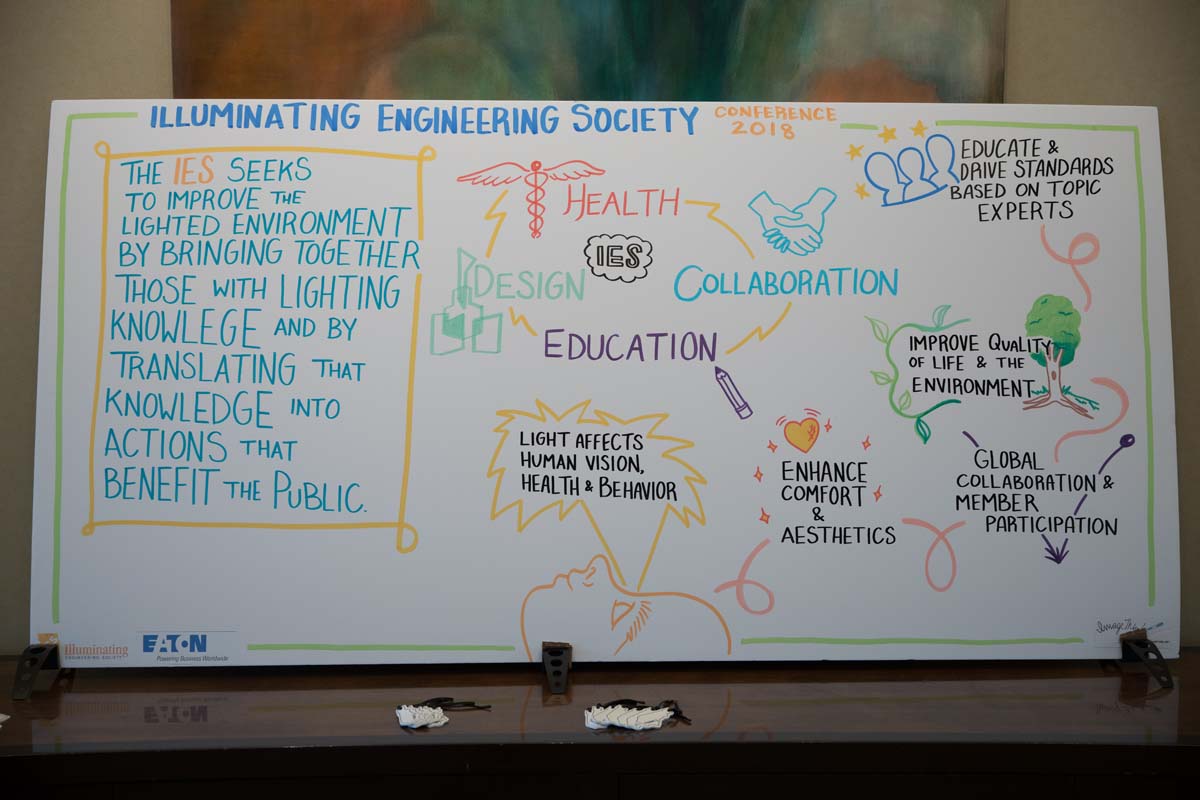 ILLUMINATING ENGINEERING SOCIETY
CONFERENCE
2018
THE IES SEEKS
TO IMPROVE THE
LIGHTED ENVIRONMENT
BY BRINGING TOGETHER
THOSE WITH LIGHTING
KNOWLEGE AND BY
TRANSLATING THAT
KNOWLEDGE INTO
ACTIONS THAT
BENEFIT THE PUBLIC.
HEALTH
IES
DESIGN
COLLABORATION
EDUCATION
EDUCATE &
DRIVE STANDARDS
BASED ON TOPIC
EXPERTS
IMPROVE QUALITY
OF LIFE & THE
ENVIRONMENT
LIGHT AFFECTS
HUMAN VISION,
HEALTH & BEHAVIOR
ENHANCE
COMFORT
&
AESTHETICS
GLOBAL
COLLABORATION &
MEMBER
PARTICIPATION
Illuminating
ENGINEERING SOCIETY
EATON
Powering Business Worldwide